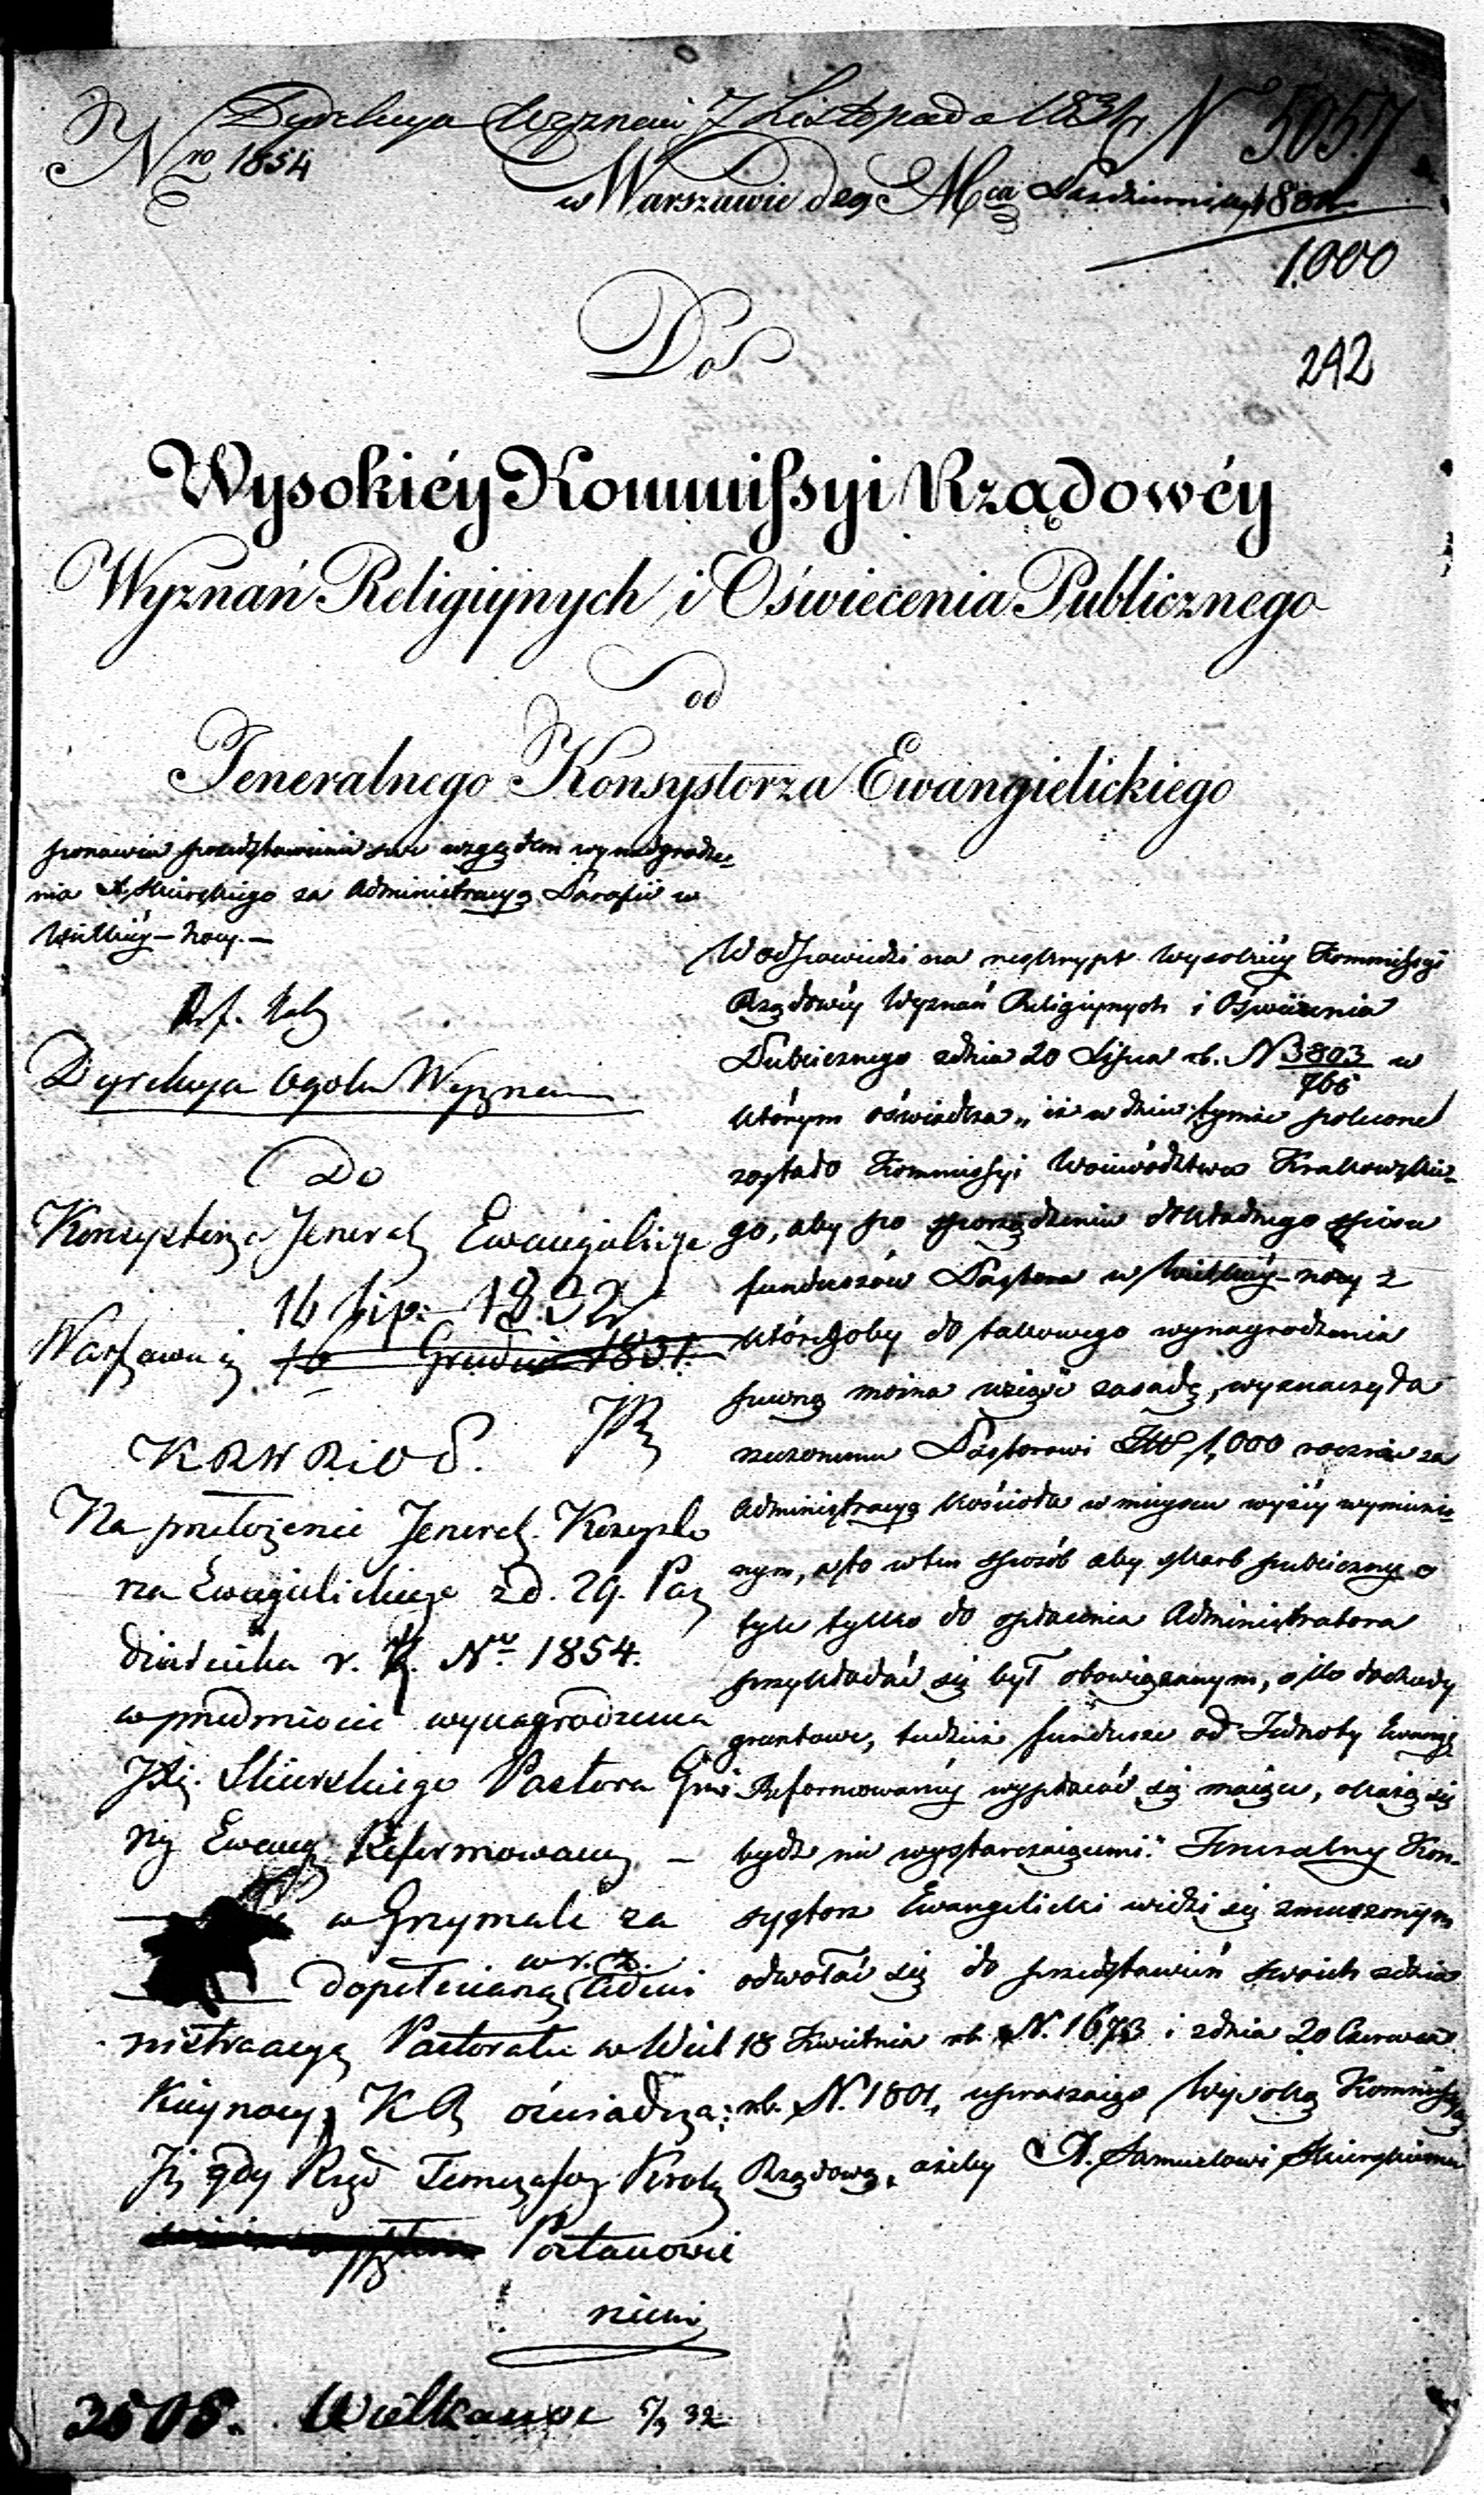 Dyrekcya Wyznań 7 Listopada 1831 r. N 5057
Nro 1854
w Warszawie d 29 Mca Października 1831
1000
242
Do
Wysokiéy Kommissyi Rządowéy
Wyznań Religiynych i Oświecenia Publicznego
od
Jeneralnego Konsystorza Ewangielickiego
ponawia przedstawienie swe względem wynadgrodze-
nia X. Skierskiego za Administracyą Parafii w
Wielkiéy-nocy.—
Dyrekcya Ogólna Wyznań
Do
Konsystorza Jeneral Ewangielickie
16 Lip: 1832
Warszawa 16 Grudnia 1831.
K R W R i O P.
Na przełożenie Jeneral. Konsysto
rza Ewangielickiego z d. 29. Paź
dziernika r. z. No. 1854.
w przedmiocie wynagrodzenia
JXi. Skierskiego Pastora Gmi
ny Ewang Reformowaney —
w Grzymale za
w r. z.
dopełnianą Admi
nistracyą Pastoratu w Wiel
kieynocy, K R oświadcza:
Iż gdy Rząd Tymczasowy Królest
Postanowie
niem
W odpowiedzi na reskrypt Wysokiéy Kommissyi
Rządowéy Wyznań Religiynych i Oświecenia
Publicznego z dnia 20 Lipca rb. N 3803/766 w
którym oświadcza „iż w dniu tymże polecone
zostało Kommissyi Woiewództwa Krakowskie-
go, aby po sporządzeniu dokładnego spisu
funduszów Pastora w Wielkiéy-nocy z
któregoby do takowego wynagrodzenia
pewną można wziąść zasadę, wyznaczyła
rzeczonemu Pastorowi Złp 1,000 rocznie za
Administracyą Kościoła w mieyscu wyżéy wymienio-
nym, a to w ten sposób aby skarb publiczny o
tyle tylko do opłacenia Administratora
przykładać się był obowiązanym, o ile dochody
gruntowe, tudzież fundusze od Jednoty Ewangie
Reformowanéy wypłacać się maiące, okażą się
bydź nie wystarczaiącemi." Jeneralny Kon-
systorz Ewangelicki widzi się zmuszonym
odwołać się do przedstawień swoich z dnia
18 Kwietnia rb. N. 1673 i z dnia 20 Czerwca
rb. N. 1801, upraszaiąc Wysoką Kommissyą
Rządową, ażeby X. Samuelowi Skierskiemu
2508. Wielkanoc 5/9 32